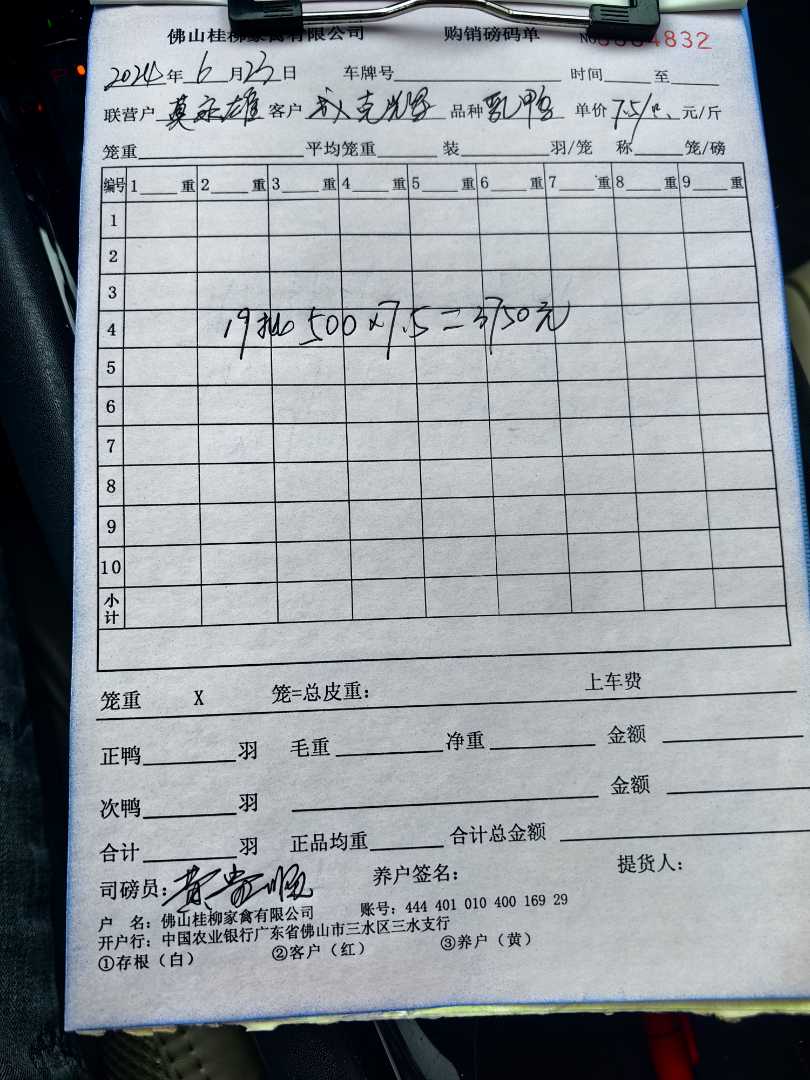 佛山桂柳家禽有限公司 购销磅码单 NO 4832
2024年6月23日 车牌号 时间 至
联营户 莫 雄 客户 品种 乳鸭 单价 7.5/ 元/斤
笼重 平均笼重 装 羽/笼 称 笼/磅
编号 1 重 2 重 3 重 4 重 5 重 6 重 7 重 8 重 9 重
1
2
3
4 500×7.5=3750元
5
6
7
8
9
10
小计
笼重 X 笼=总皮重: 上车费
正鸭 羽 毛重 净重 金额
次鸭 羽 金额
合计 羽 正品均重 合计总金额
司磅员: 黄 养户签名: 提货人:
户 名: 佛山桂柳家禽有限公司 账号: 444 401 010 400 169 29
开户行: 中国农业银行广东省佛山市三水区三水支行
①存根(白) ②客户(红) ③养户(黄)